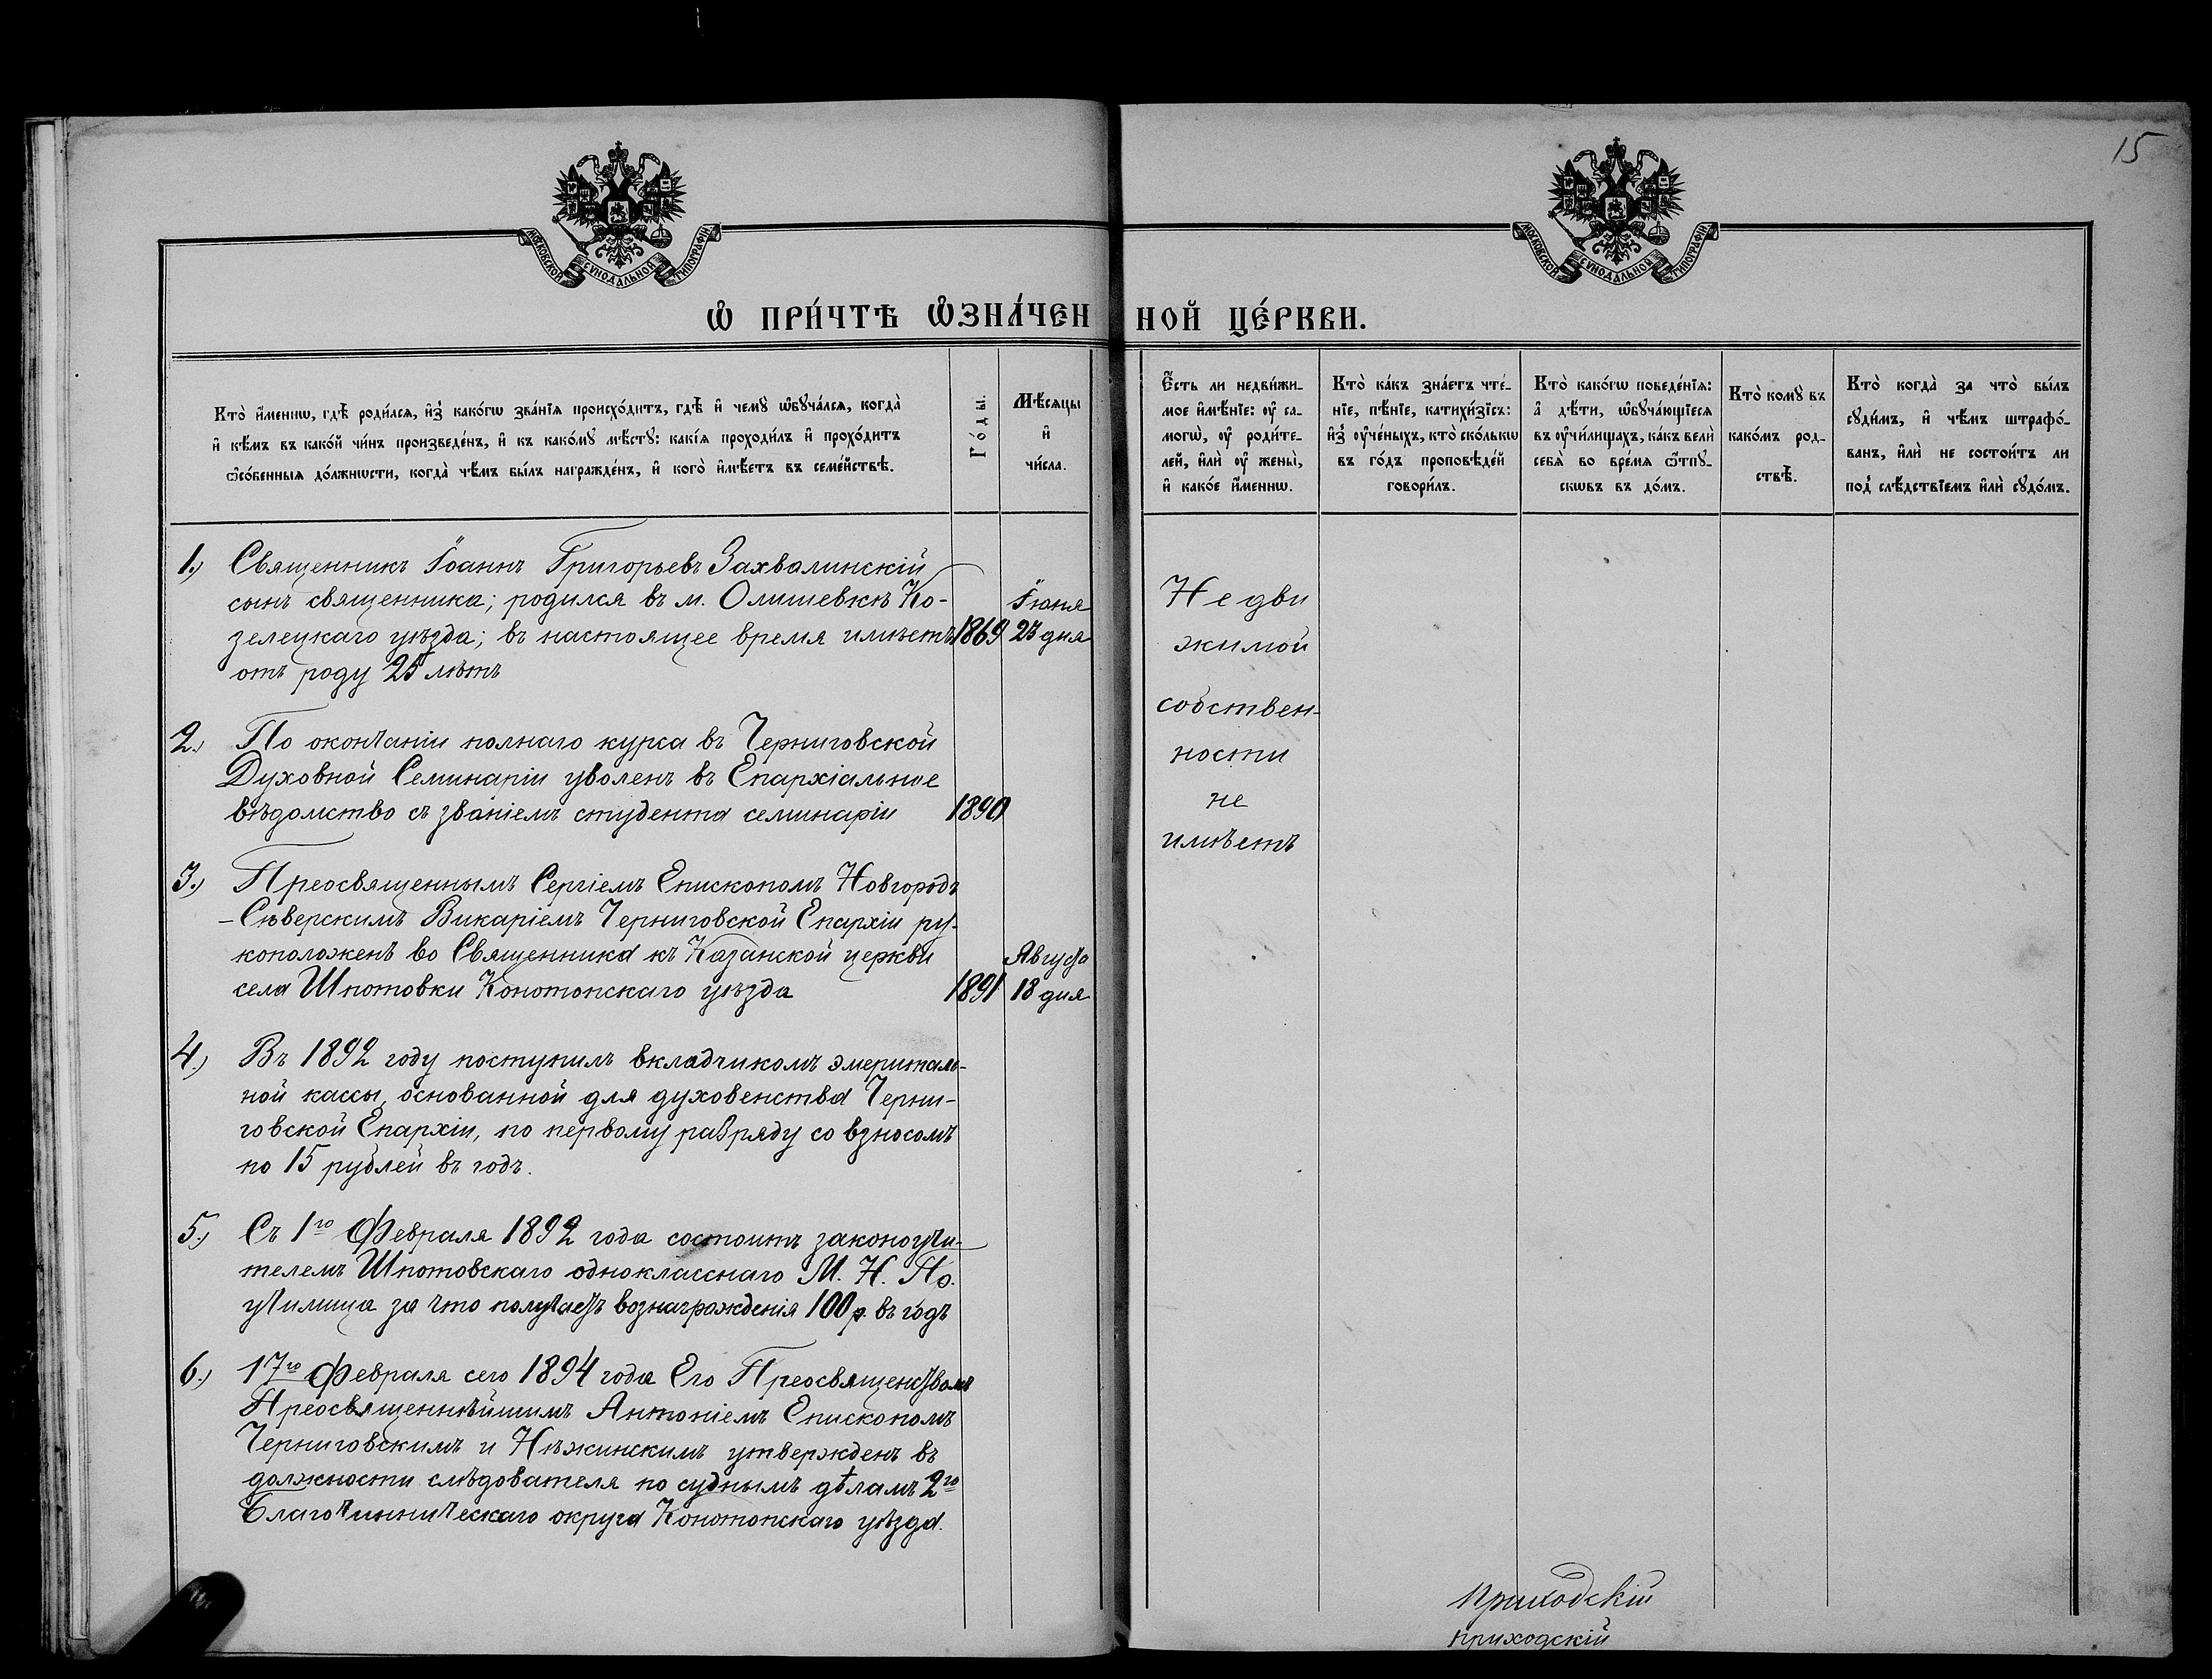 15
МОСКОВСКОЙ СѴНОДАЛЬНОЙ ТИПОГРАФІИ
МОСКОВСКОЙ СѴНОДАЛЬНОЙ ТИПОГРАФІИ
Ѽ ПРИ́ЧТѢ Ѽ҆ЗНА́ЧЕННОЙ ЦЕ́РКВИ.
Кто̀ и҆́меннѡ, гдѣ̀ роди́лсѧ, и҆з̾ како́гѡ зва́нїѧ происхо́дитъ, гдѣ̀ и҆ чемꙋ̀ ѡ҆бꙋча́лсѧ, когда̀
и҆ кѣ́мъ въ како́й чи́нъ произведе́нъ, и҆ къ како́мꙋ мѣ́стꙋ: какі́ѧ проходи́лъ и҆ прохо́дитъ
ѻ҆со́бенныѧ до́лжнѡсти, когда̀ чѣ́мъ бы́лъ награжде́нъ, и҆ кого̀ и҆мѣ́етъ въ семе́йствѣ.
Го́ды.
Мѣ́сѧцы
и҆
чи́сла.
Е҆́сть ли недви́жи-
мое и҆мѣ́нїе: ᲂу҆ са-
могѡ̀, ᲂу҆ роди́те-
лей, и҆лѝ ᲂу҆ жены̀,
и҆ како́е и҆́меннѡ.
Кто̀ ка́къ зна́етъ чте́-
нїе, пѣ́нїе, катихи́зїсъ:
и҆з̾ ᲂу҆че́ныхъ, кто̀ ско́лькѡ
въ го́дъ проповѣ́дей
говори́лъ.
Кто̀ како́гѡ поведе́нїѧ:
а҆ дѣ́ти, ѡ҆бꙋча́ющїесѧ
въ ᲂу҆чи́лищахъ, ка́къ велѝ
себѧ̀ во вре́мѧ ѿпꙋ-
скѡвъ въ до́мъ.
Кто̀ комꙋ̀ въ
како́мъ род-
ствѣ̀.
Кто̀ когда̀ за что̀ бы́лъ
сꙋди́мъ, и҆ чѣ́мъ штрафо́-
ванъ, и҆лѝ не состои́тъ ли
под̾ слѣ́дствїемъ и҆лѝ сꙋдо́мъ.
1.) Священникъ Іоаннъ Григорьевъ Захвалинскій
сынъ священника; родился въ м. Олишевкѣ Ко- Іюня
зелецкаго уѣзда; въ настоящее время имѣетъ 1869 23 дня
отъ роду 25 лѣтъ
2.) По окончаніи полнаго курса въ Черниговской
Духовной Семинаріи уволенъ въ Епархіальное
вѣдомство съ званіемъ студента семинаріи 1890
3.) Преосвященнымъ Сергіемъ Епископомъ Новгородъ
-Сѣверскимъ Викаріемъ Черниговской Епархіи ру-
коположенъ во Священника къ Казанской церкви Августа
села Шпотовки Конотопскаго уѣзда 1891 18 дня
4.) Въ 1892 году поступилъ вкладчикомъ эмериталь-
ной кассы, основанной для духовенства Черни-
говской Епархіи, по первому разряду со взносомъ
по 15 рублей въ годъ.
5.) Съ 1го Февраля 1892 года состоитъ законоучи-
телемъ Шпотовскаго однокласснаго М. Н. По.
училища за что получаетъ вознагражденія 100 р. въ годъ
6.) 17го Февраля сего 1894 года Его Преосвященствомъ
Преосвященнѣйшимъ Антоніемъ Епископомъ
Черниговскимъ и Нѣжинскимъ утвержденъ въ
должности слѣдователя по суднымъ дѣламъ 2го
Благочинническаго округа Конотопскаго уѣзда.
Недви
жимой
собствен-
ности
не
имѣетъ
приходскій
приходскій